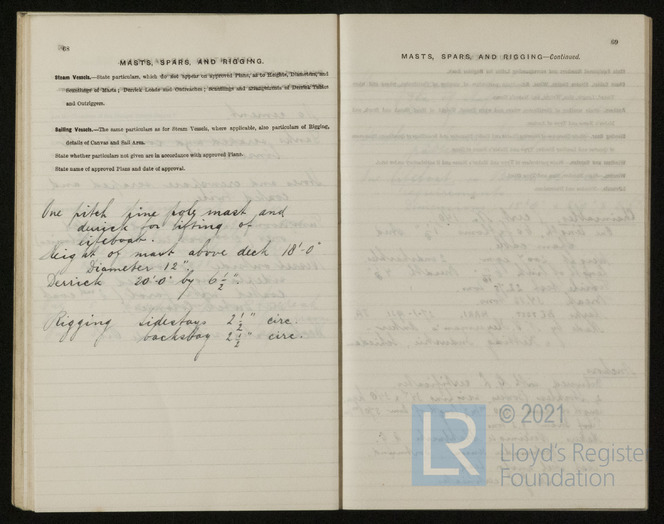 68
MASTS, SPARS, AND RIGGING.
Steam Vessels.—State particulars, which do not appear on approved Plans, as to Heights, Diameters, and
Scantlings of Masts; Derrick Loads and Outreaches; scantlings and arrangements of Derrick Tables
and Outriggers.
Sailing Vessels.—The same particulars as for Steam Vessels, where applicable, also particulars of Rigging,
details of Canvas and Sail Area.
State whether particulars not given are in accordance with approved Plans.
State name of approved Plans and date of approval.
One pitch pine pole mast and
derrick for lifting of
lifeboat.
Height of mast above deck 18'-0"
Diameter 12"
Derrick 20'-0" by 6 1/2"
Rigging sidestays 2 1/2" circ.
backstay 2 1/2" circ.
69
MASTS, SPARS, AND RIGGING—Continued.
© 2021
LR
Lloyd's Register
Foundation